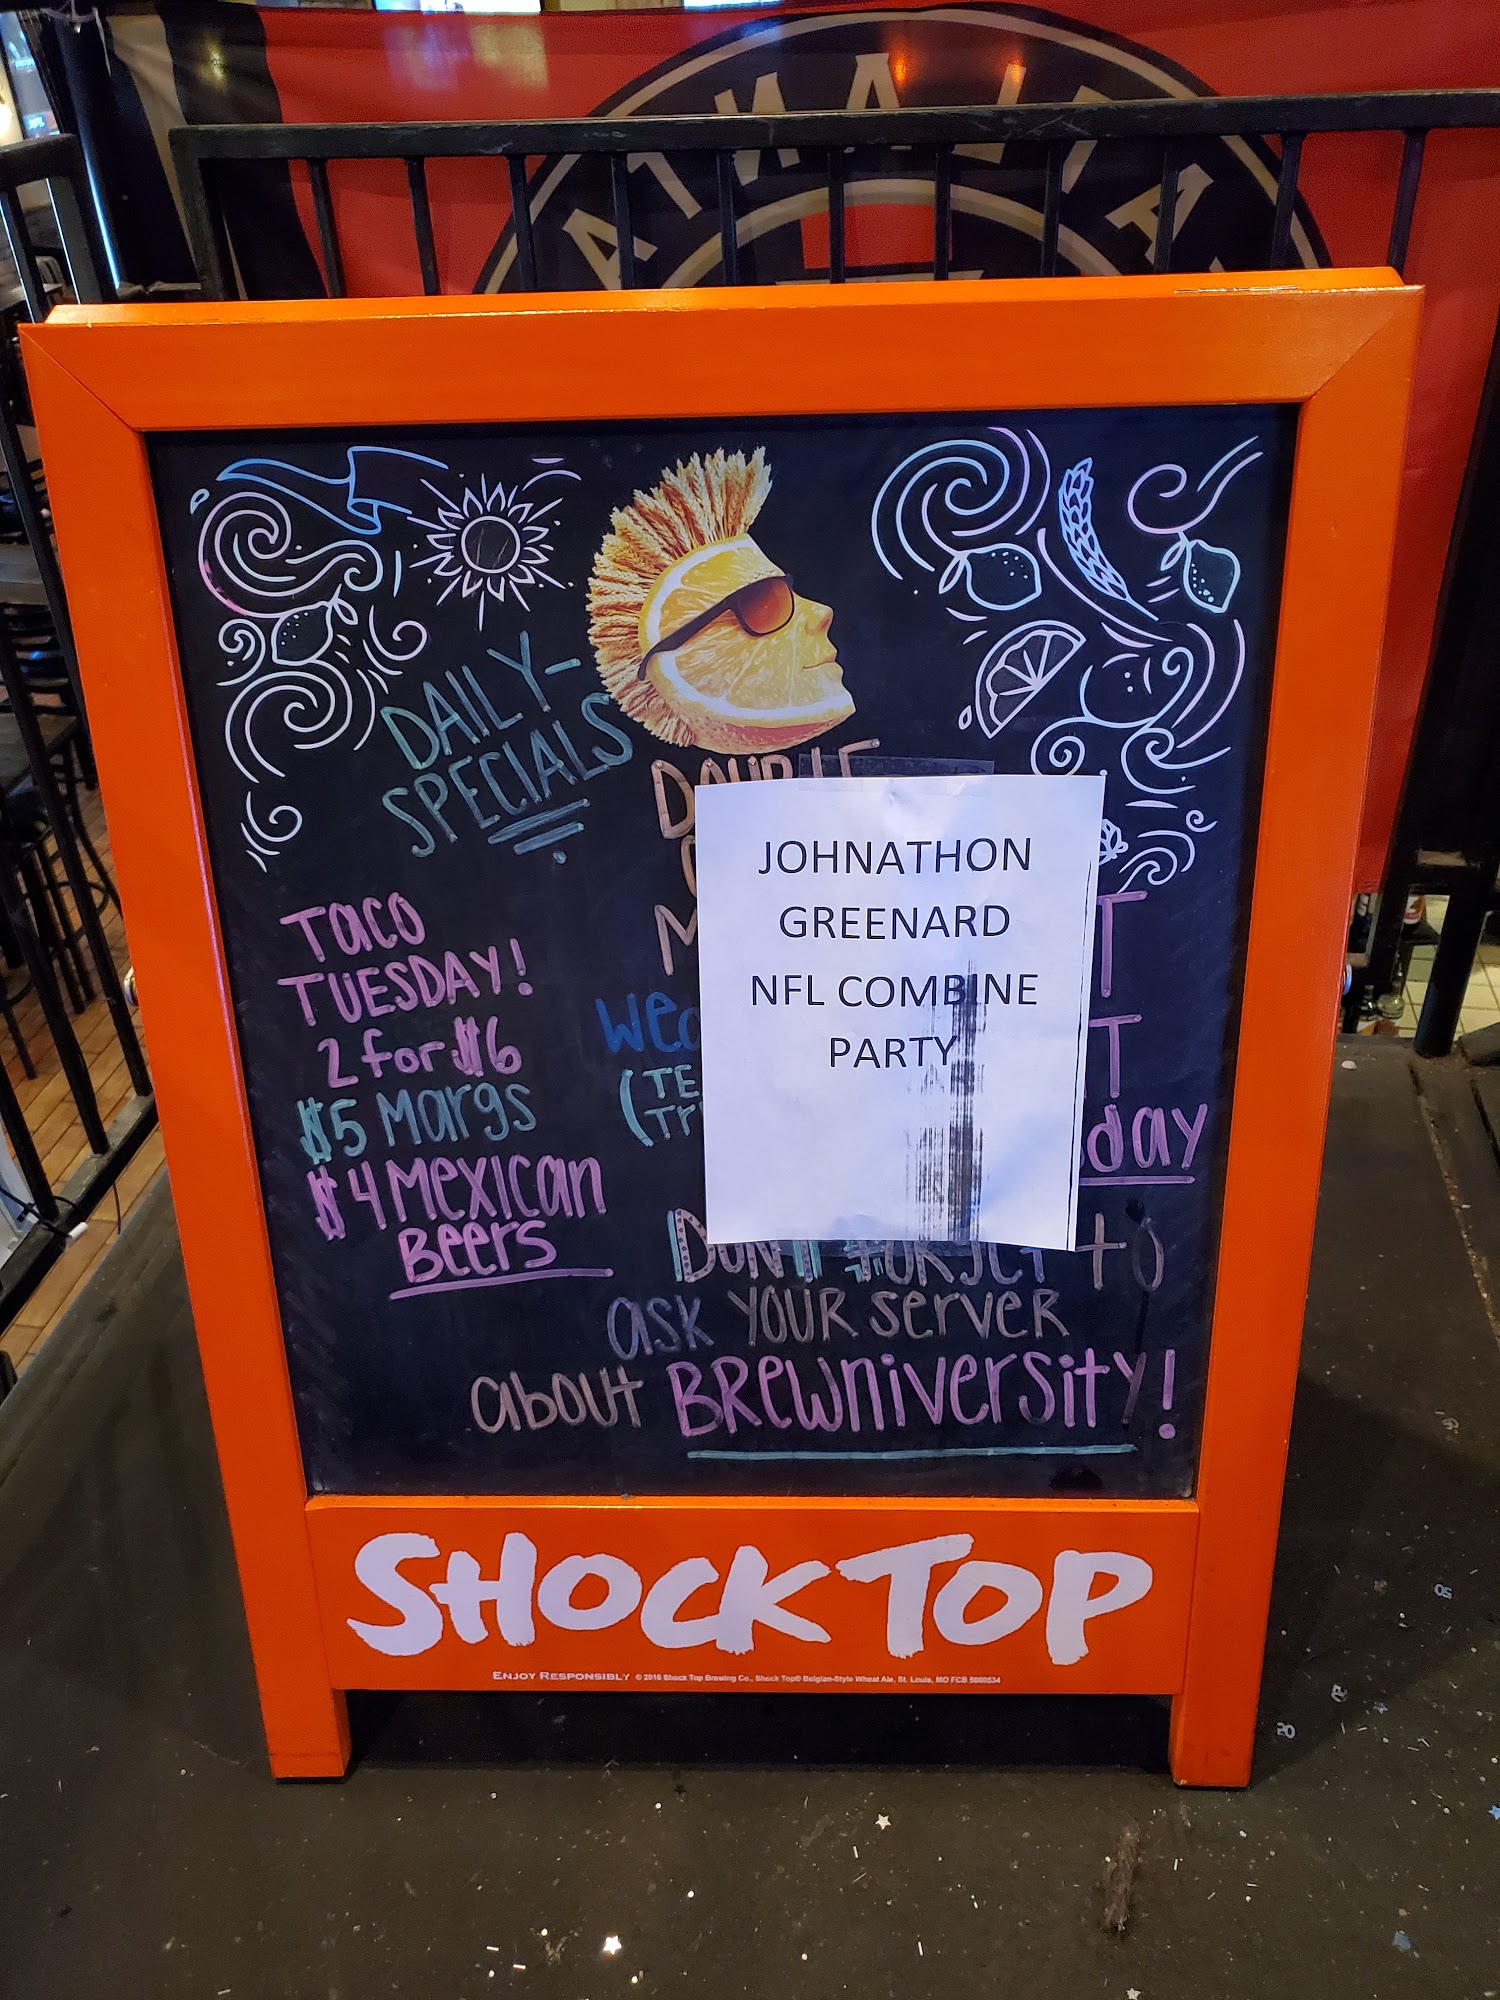 ATLANTA
DAILY-
SPECIALS
DOUBLE
TACO
TUESDAY!
2 for $6
$5 Margs
$4 Mexican
Beers
JOHNATHON
GREENARD
NFL COMBINE
PARTY
T
T
day
DON'T FORGET to
ask YOUR server
about BREWniversity!
SHOCK TOP
ENJOY RESPONSIBLY © 2016 Shock Top Brewing Co., Shock Top® Belgian-Style Wheat Ale, St. Louis, MO